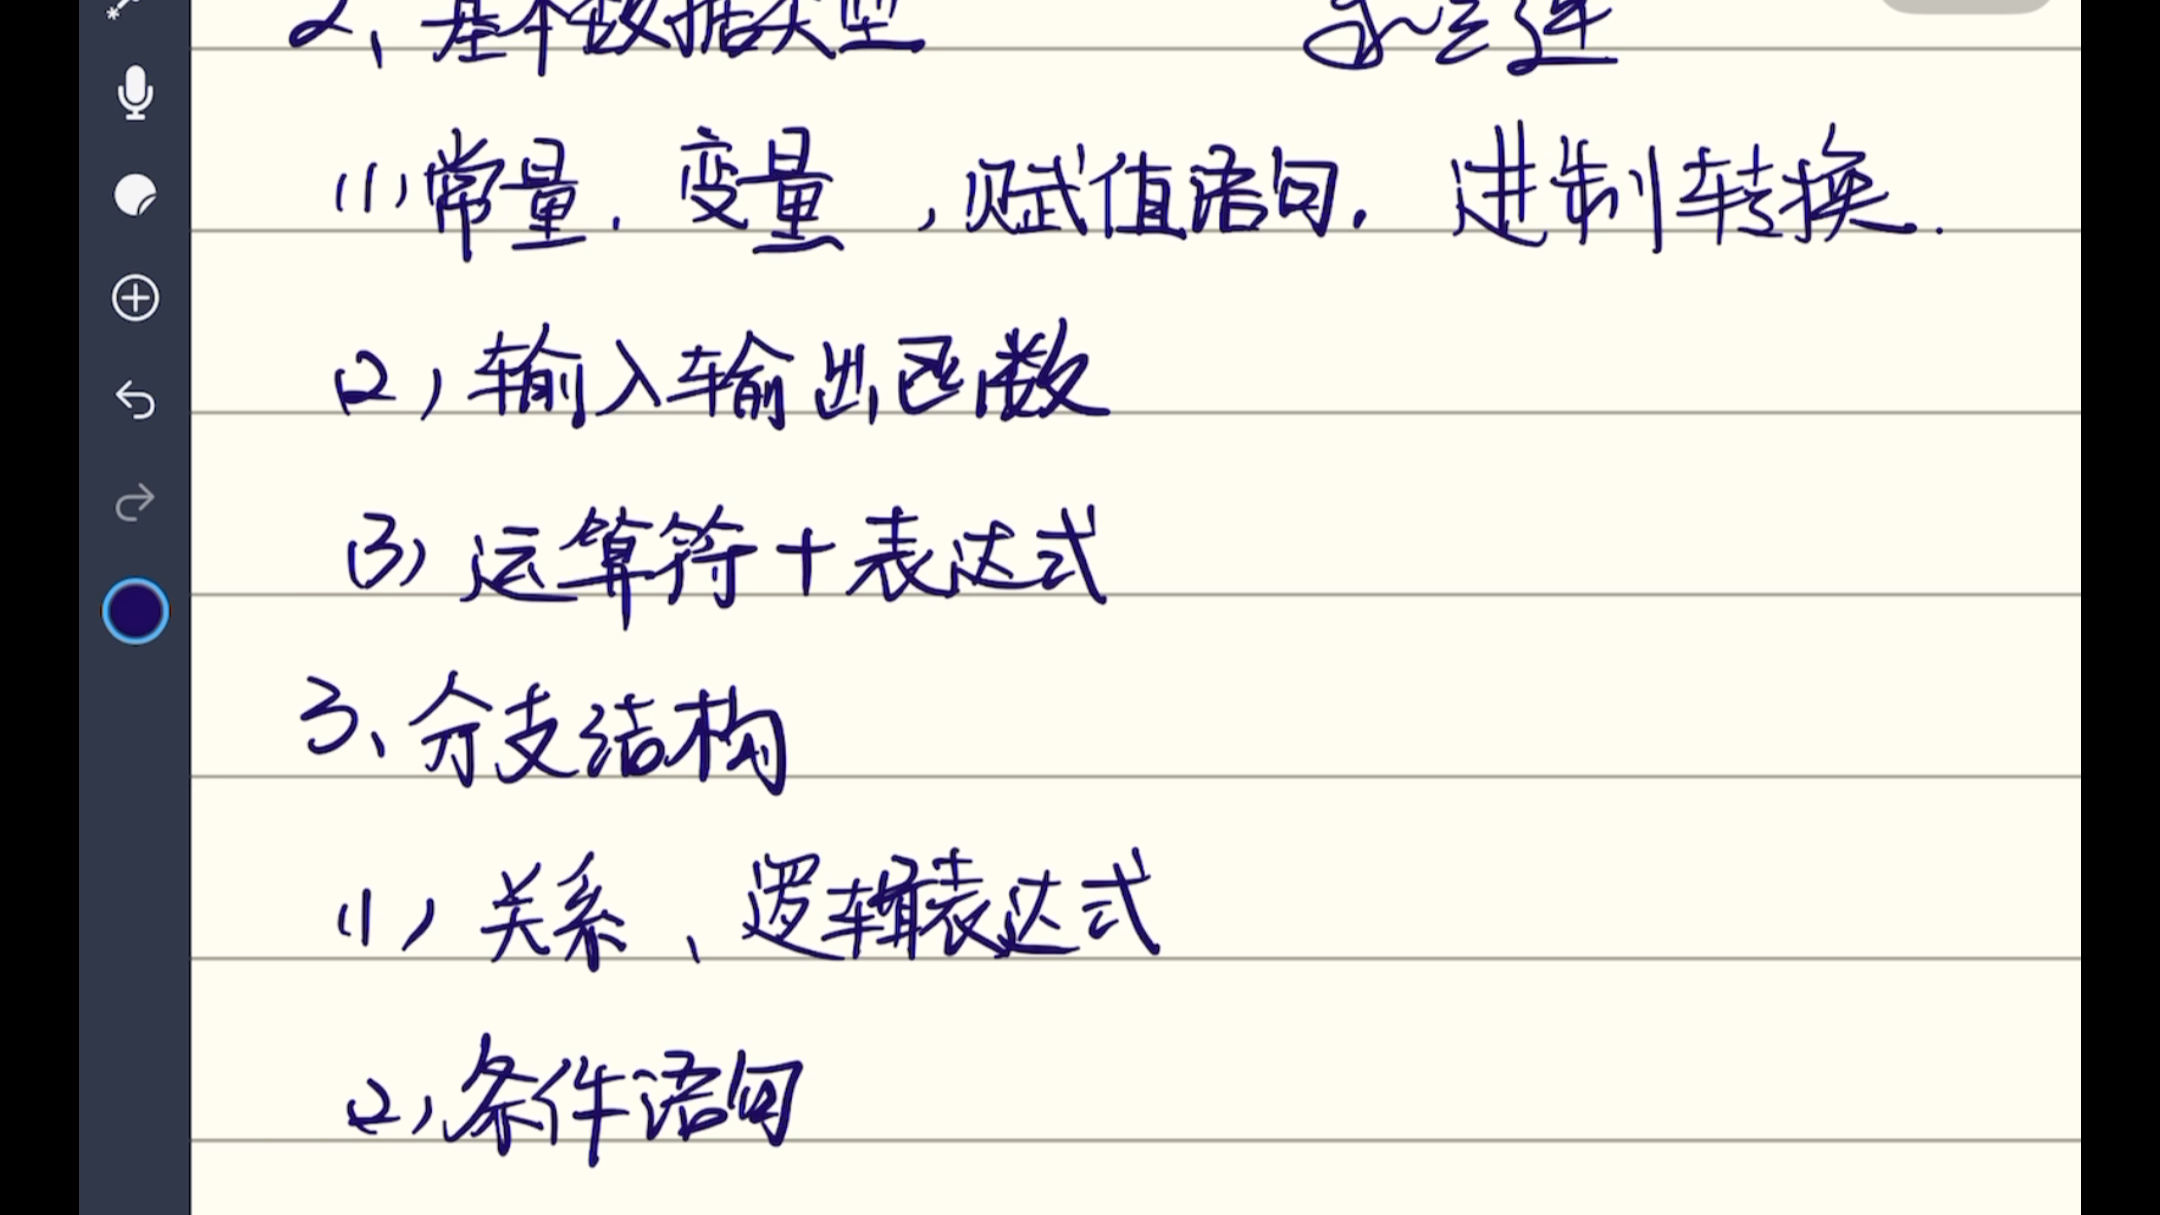 2、基本数据类型
(1)常量.变量,赋值语句.进制转换.
(2)输入输出函数
(3)运算符+表达式
3、分支结构
(1)关系、逻辑表达式
(2)条件语句